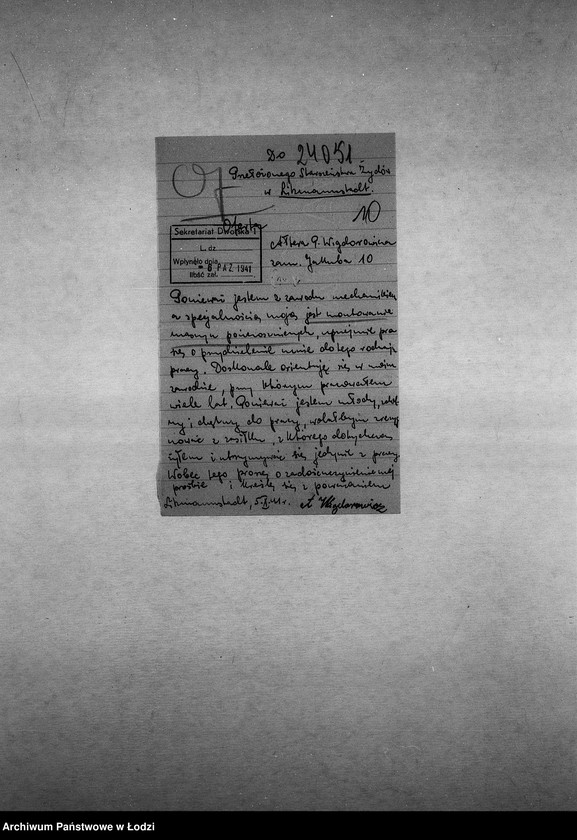 Do 24051
Przełożonego Starszeństwa Żydów
w Litzmannstadt.
10
Oferta
Sekretariat Dworska 1
L. dz
Wpłynęło dnia
- 6 PAZ. 1941
Ilość zał.
Altera G. Wigdorowicza
zam. Jakuba 10
Ponieważ jestem z zawodu mechanikiem
a specjalnością moją jest montowanie
maszyn pończoszniczych, uprzejmie pro
szę o przydzielenie mnie do tego rodzaju
pracy. Doskonale orientuję się w moim
zawodzie, przy którym pracowałem
wiele lat. Ponieważ jestem młody, zdol
ny i chętny do pracy, wolałbym zrezyg
nować z zasiłku, z którego dotychczas
żyłem i utrzymywać się jedynie z pracy.
Wobec tego proszę o zadośćuczynienie mej
prośbie i kreślę się z poważaniem
Litzmannstadt, 5.X.41r. A Wigdorowicz
Archiwum Państwowe w Łodzi